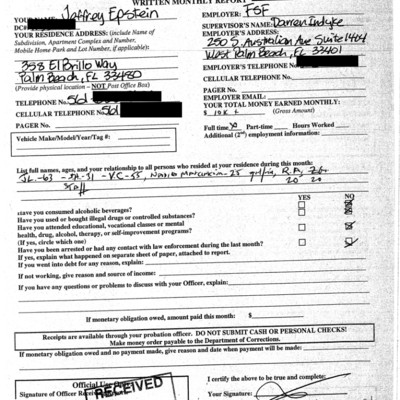 WRITTEN MONTHLY REPORT
YOUR NAME: Jaffrey Epstein
DC#
YOUR RESIDENCE ADDRESS: (include Name of
Subdivision, Apartment Complex and Number,
Mobile Home Park and Lot Number, if applicable):
358 El Brillo Way
Palm Beach, FL 33480
(Provide physical location – NOT Post Office Box)
TELEPHONE NO. 561
CELLULAR TELEPHONE NO. 561
PAGER No.
Vehicle Make/Model/Year/Tag #:
EMPLOYER: FSF
SUPERVISOR'S NAME: Darren Indyke
EMPLOYER'S ADDRESS:
250 S. Australian Ave Suite 1404
West Palm Beach, FL 33401
EMPLOYER'S TELEPHONE NO.
CELLULAR TELEPHONE NO.
PAGER NO.
EMPLOYER EMAIL:
YOUR TOTAL MONEY EARNED MONTHLY:
$ (Gross Amount)
Full time Part-time Hours Worked
Additional (2nd) employment information:
List full names, ages, and your relationship to all persons who resided at your residence during this month:
JL-63 - 31 - V.C-55,
20 20
Staff
YES NO
Have you consumed alcoholic beverages?
Have you used or bought illegal drugs or controlled substances?
Have you attended educational, vocational classes or mental
health, drug, alcohol, therapy, or self-improvement programs?
(If yes, circle which one)
Have you been arrested or had any contact with law enforcement during the last month?
If yes, explain what happened on separate sheet of paper, attached to report.
If you went into debt for any reason, explain:
If not working, give reason and source of income:
If you have any questions or problems to discuss with your Officer, explain:
If monetary obligation owed, amount paid this month: $
Receipts are available through your probation officer. DO NOT SUBMIT CASH OR PERSONAL CHECKS!
Make money order payable to the Department of Corrections.
If monetary obligation owed and no payment made, give reason and date when payment will be made:
Official Use
Signature of Officer
RECEIVED
I certify the above to be true and complete:
Your Signature: